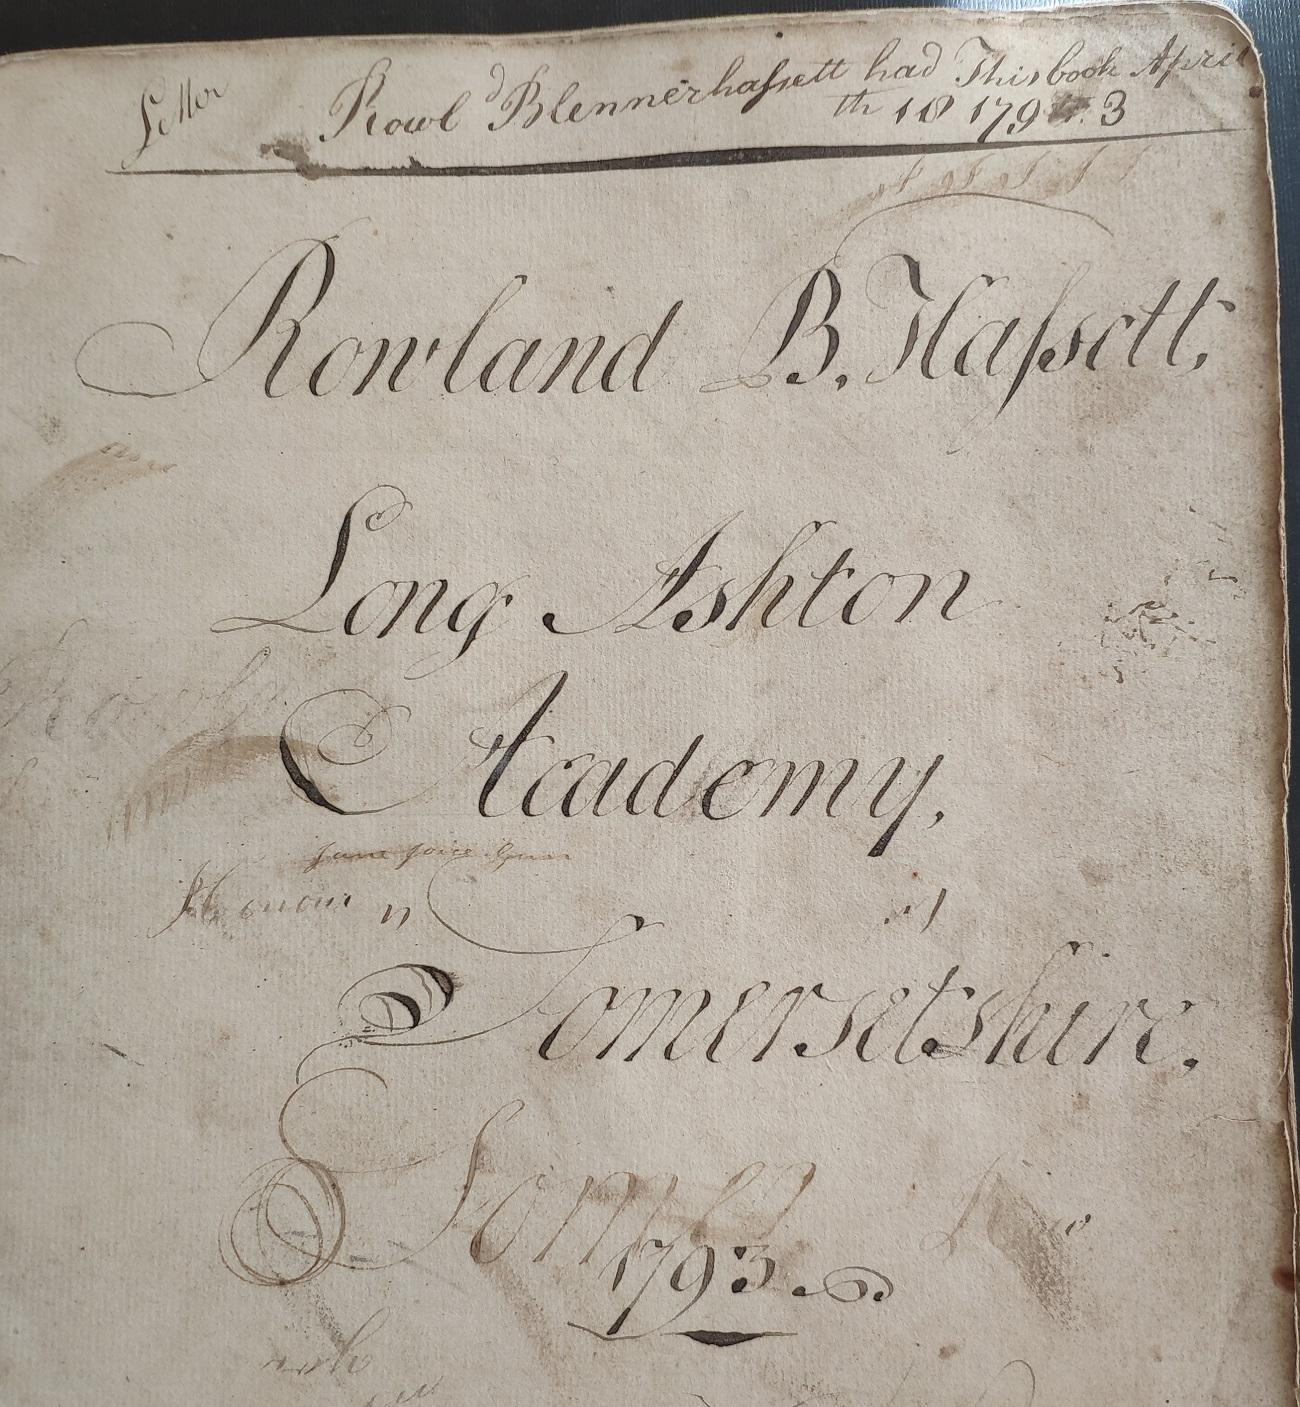 Rowl^d Blennerhaſsett had This book April
th 18 179 3
Rowland B. Haſsett,
Long Ashton
Academy,
Honour
Somersetshire.
1793